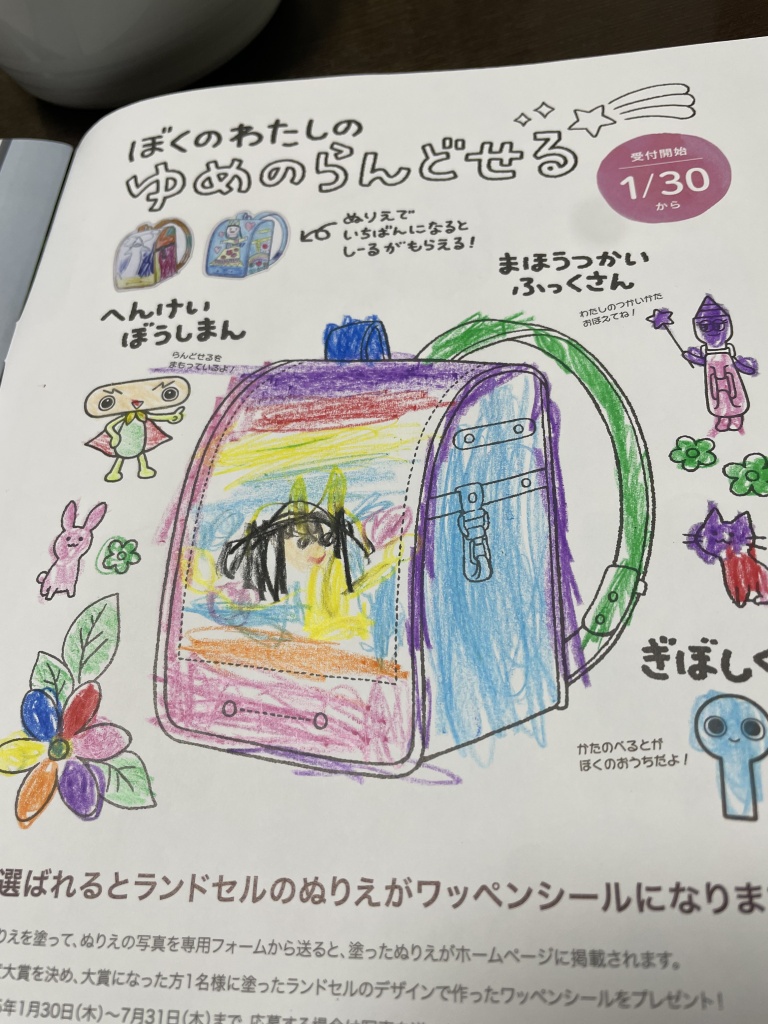 ぼくのわたしの
ゆめのらんどせる
受付開始
1/30
から
ぬりえで
いちばんになると
しーるがもらえる!
まほうつかい
ふっくさん
わたしのつかいかた
おぼえてね!
へんけい
ぼうしまん
らんどせるを
まもっているよ!
ぎぼしく
かたのべるとが
ぼくのおうちだよ!
選ばれるとランドセルのぬりえがワッペンシールになりま
りえを塗って、ぬりえの写真を専用フォームから送ると、塗ったぬりえがホームページに掲載されます。
大賞を決め、大賞になった方1名様に塗ったランドセルのデザインで作ったワッペンシールをプレゼント!
年1月30日(木)〜7月31日(木)まで